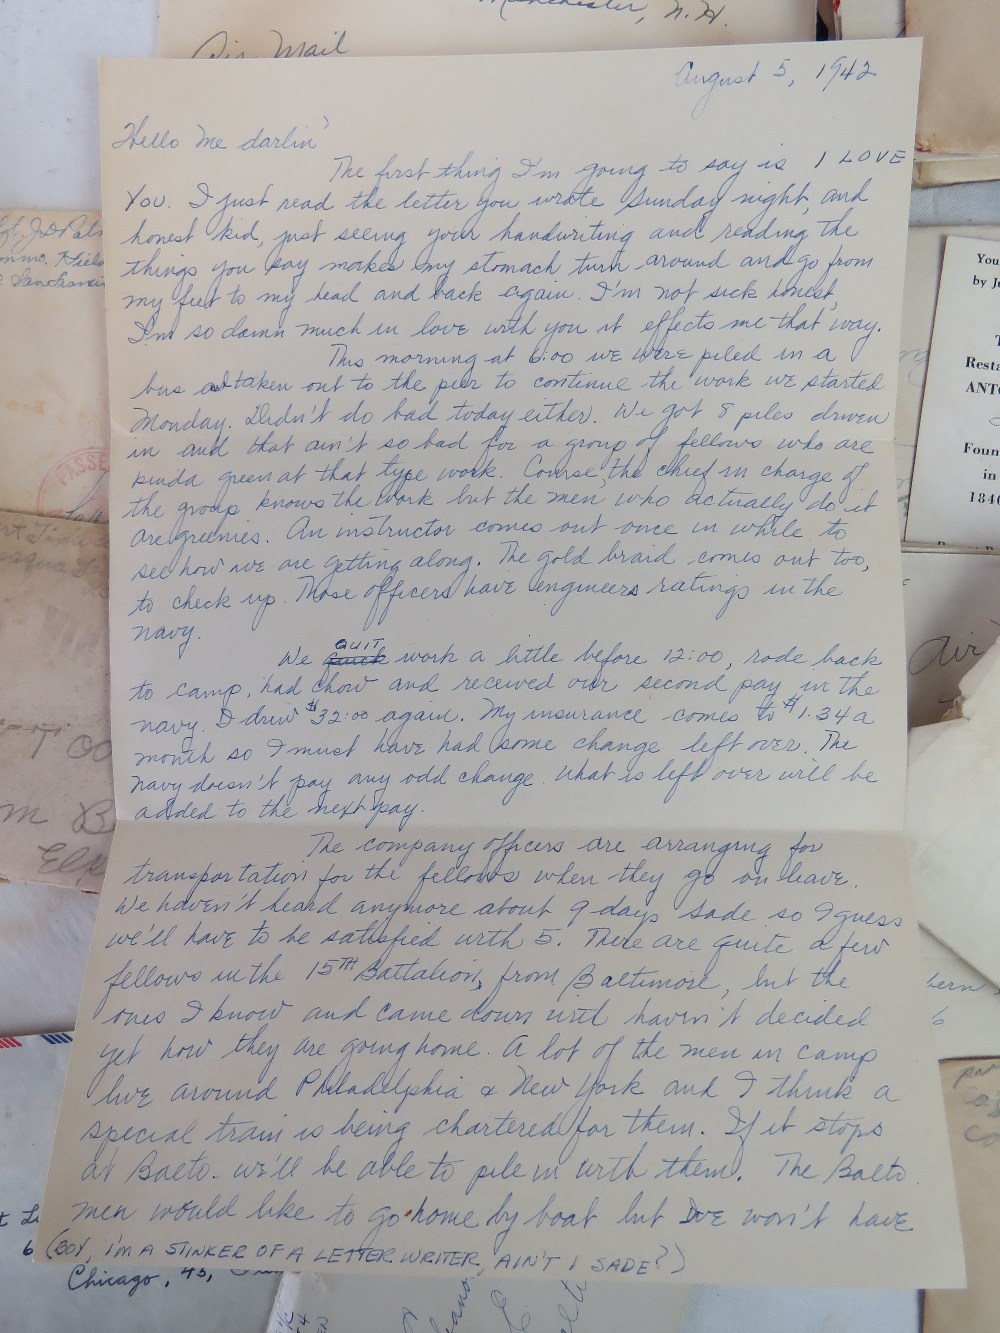 Manchester, N.H.
Air Mail
August 5, 1942
Hello Me darlin'
The first thing I'm going to say is I LOVE
YOU. I just read the letter you wrote Sunday night, and
honest kid, just seeing your handwriting and reading the
things you say makes my stomach turn around and go from
my feet to my head and back again. I'm not sick honest,
I'm so damn much in love with you it effects me that way.
This morning at 6:00 we were piled in a
bus and taken out to the pier to continue the work we started
Monday. Didn't do bad today either. We got 8 piles driven
in and that ain't so bad for a group of fellows who are
kinda green at that type work. Course, the chief in charge of
the group knows the work but the men who actually do it
are greenies. An instructor comes out once in while to
see how we are getting along. The gold braid comes out too,
to check up. Those officers have engineers ratings in the
navy.
We quick QUIT work a little before 12:00, rode back
to camp, had chow and received our second pay in the
navy. I drew $32:00 again. My insurance comes to $1.34 a
month so I must have had some change left over. The
navy doesn't pay any odd change. What is left over will be
added to the next pay.
The company officers are arranging for
transportation for the fellows when they go on leave.
We haven't heard anymore about 9 days Sade so I guess
we'll have to be satisfied with 5. There are quite a few
fellows in the 15TH Battalion, from Baltimore, but the
ones I know and came down with haven't decided
yet how they are going home. A lot of the men in camp
live around Philadelphia & New York and I think a
special train is being chartered for them. If it stops
at Balto. we'll be able to pile in with them. The Balto.
men would like to go home by boat but I've won't have
(BOY, I'M A STINKER OF A LETTER WRITER, AIN'T I SADE?)
Chicago, 45,
You
by J
Resta
ANTO
Foun
in
1840
PASSE
Air
6